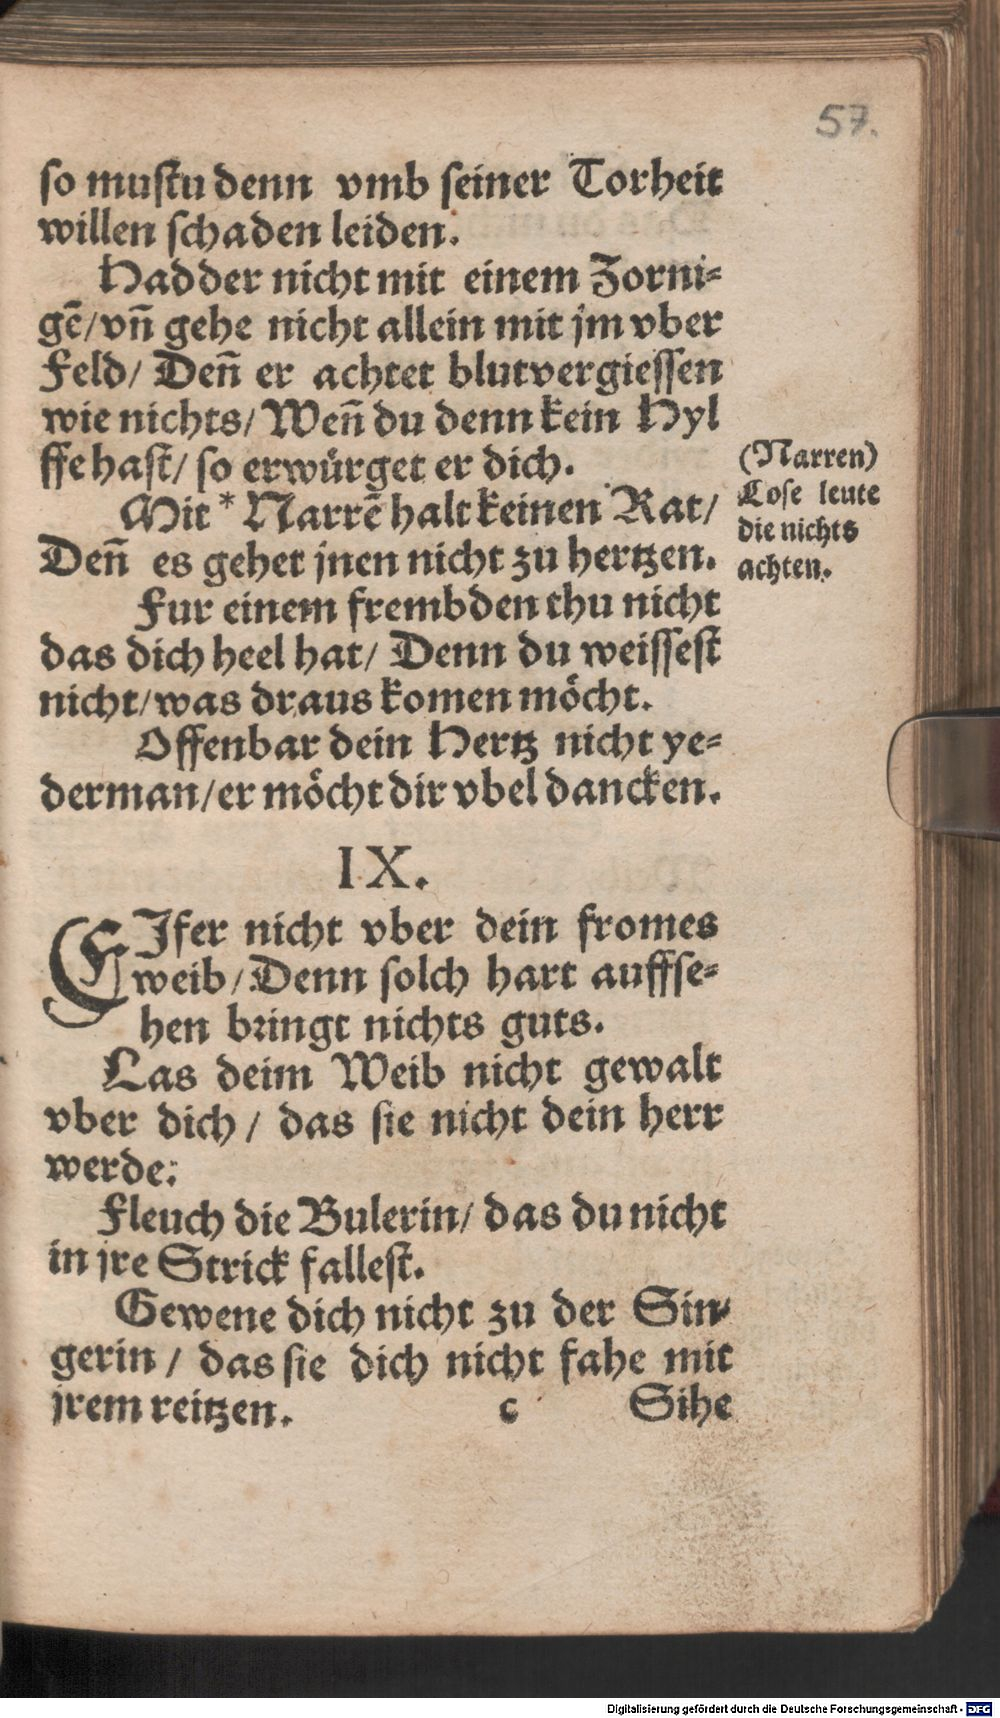 57.
so mustu denn vmb seiner Torheit
willen schaden leiden.
Hadder nicht mit einem Zorni-
gẽ/vñ gehe nicht allein mit jm vber
Feld/ Deñ er achtet blutvergiessen
wie nichts/ Weñ du denn kein Hyl
ffe hast/ so erwürget er dich.
Mit * Narrẽ halt keinen Rat/
Deñ es gehet jnen nicht zu hertzen.
Fur einem frembden thu nicht
das dich heel hat/ Denn du weissest
nicht/was draus komen möcht.
Offenbar dein Hertz nicht ye-
derman/er möcht dir vbel dancken.
(Narren)
Lose leute
die nichts
achten.
IX.
EIfer nicht vber dein fromes
weib/Denn solch hart auffse-
hen bringt nichts guts.
Las deim Weib nicht gewalt
vber dich/ das sie nicht dein herr
werde.
Fleuch die Bulerin/ das du nicht
in jre Strick fallest.
Gewene dich nicht zu der Sin-
gerin/ das sie dich nicht fahe mit
jrem reitzen. c Sihe
Digitalisierung gefördert durch die Deutsche Forschungsgemeinschaft - DFG